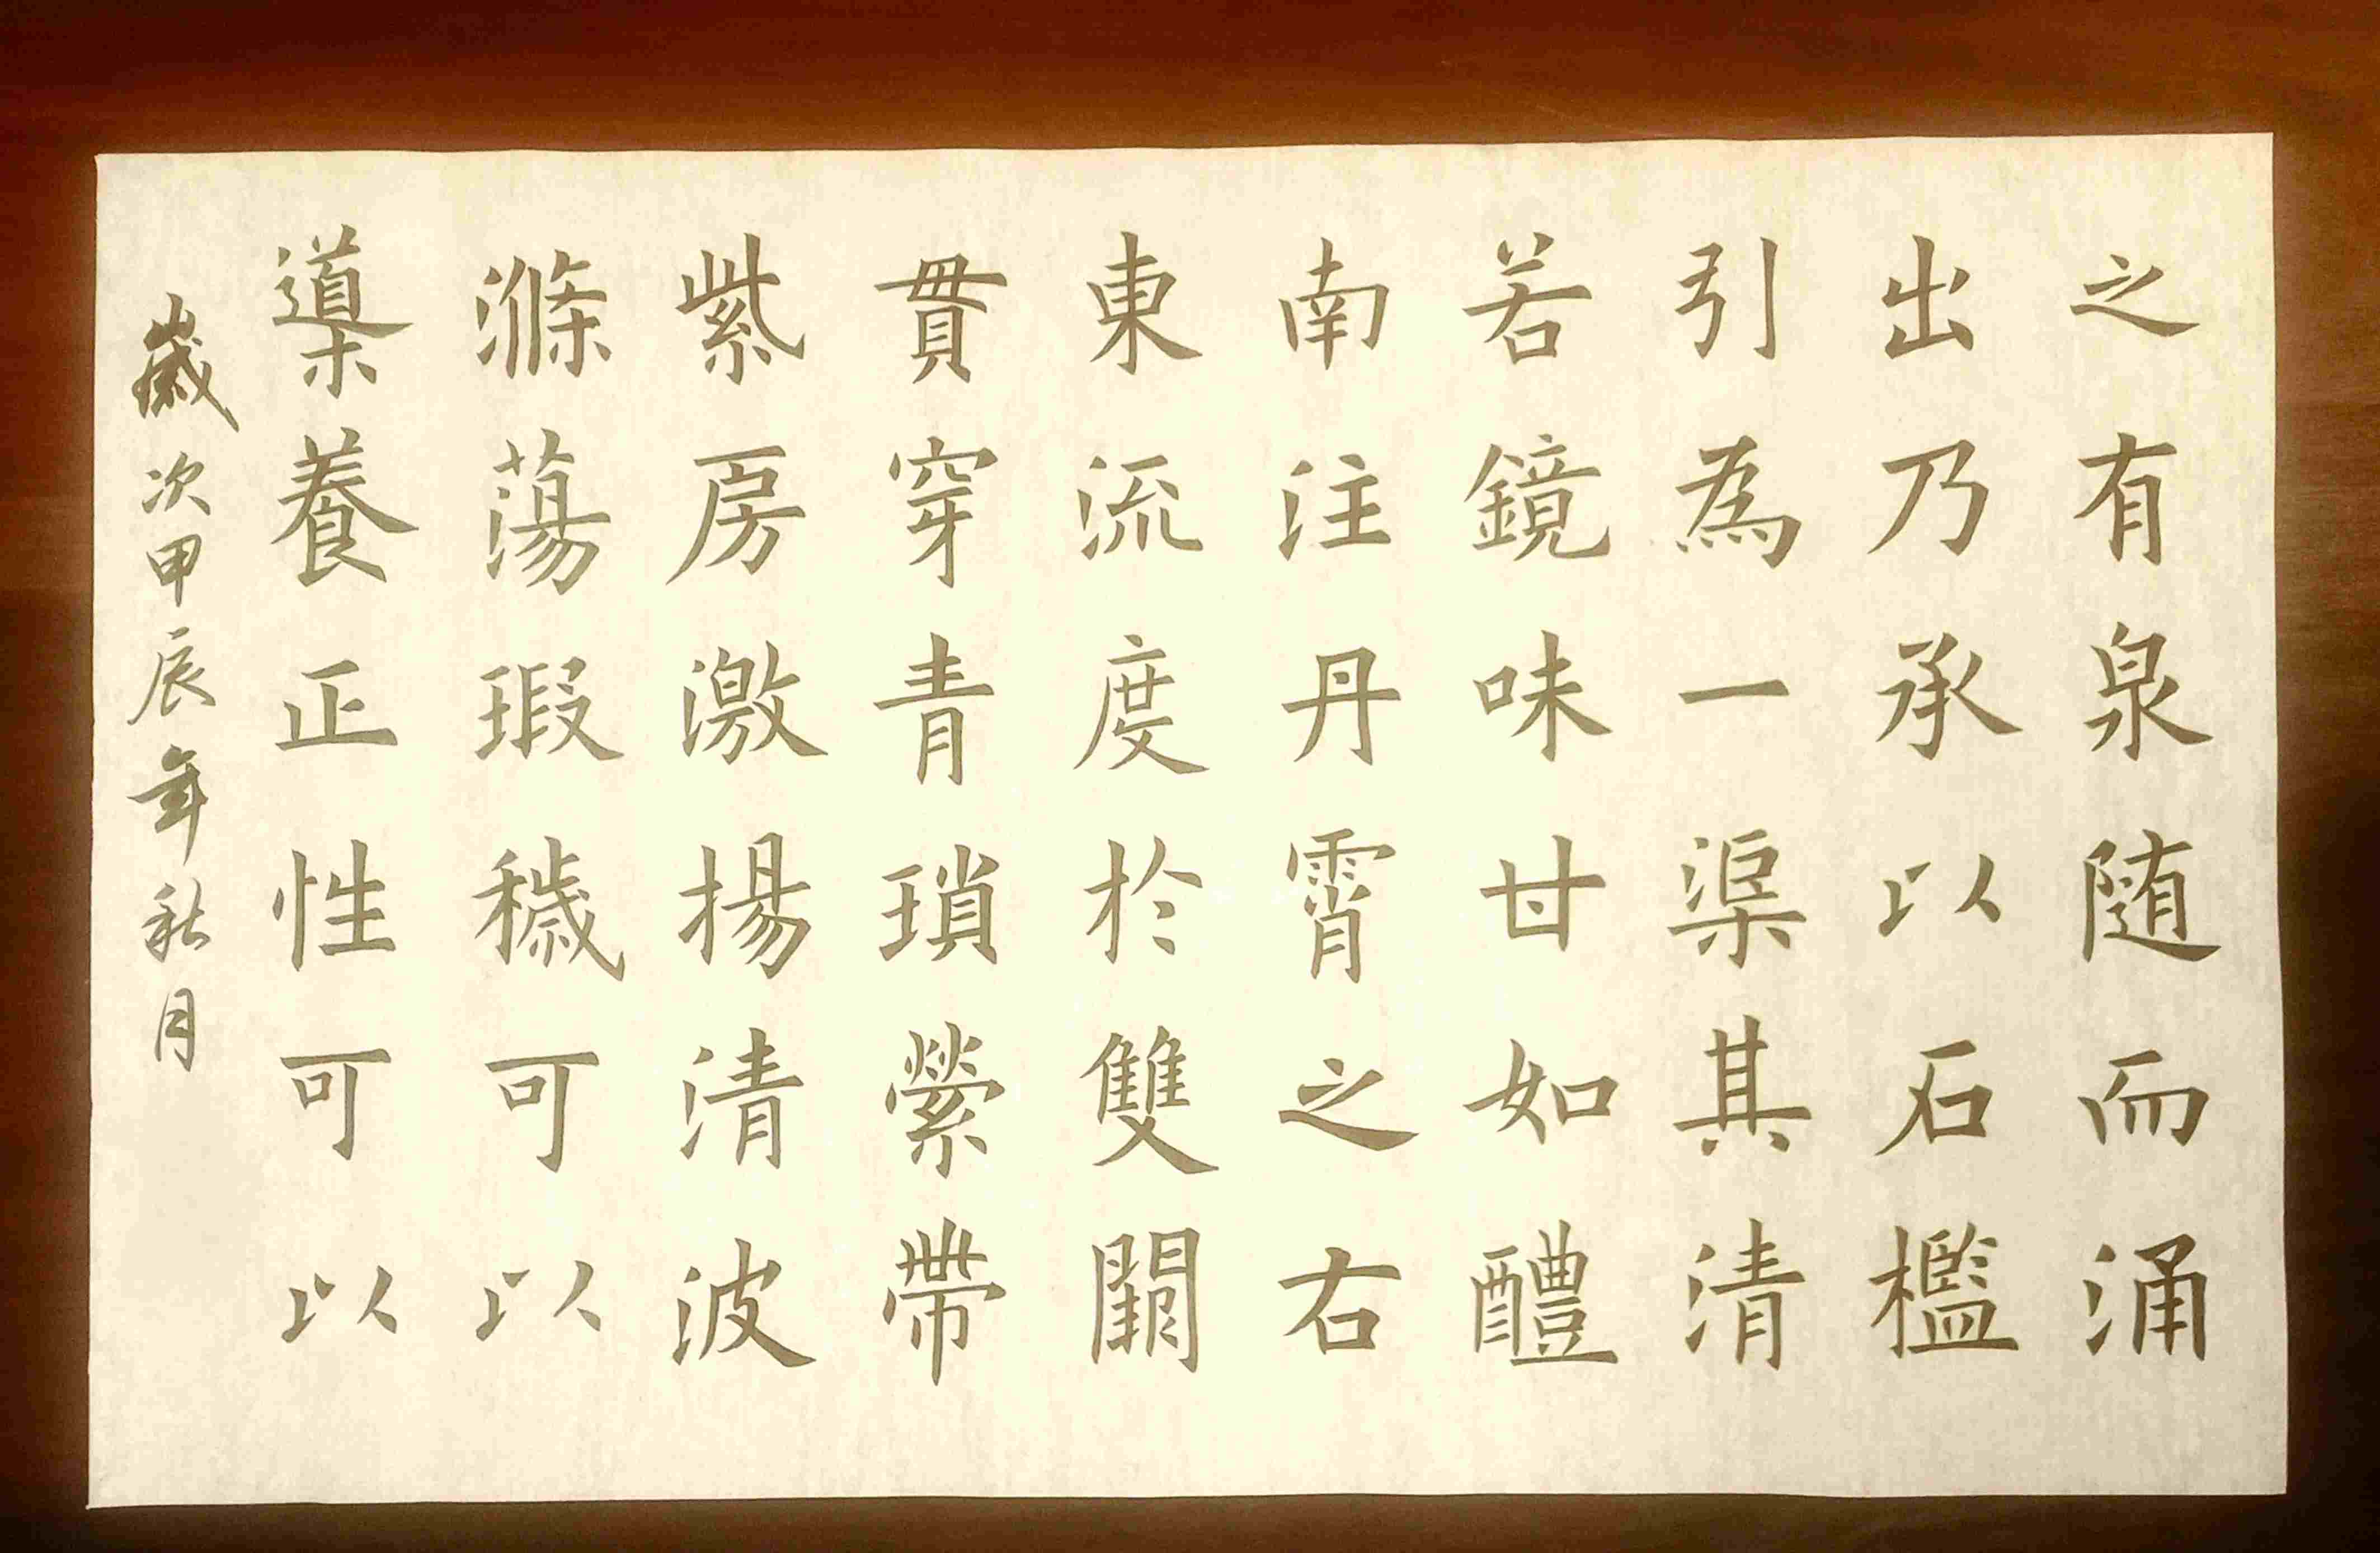 之有泉随而涌
出乃承以石檻
引為一渠其清
若鏡味甘如醴
南注丹霄之右
東流度於雙闕
貫穿青瑣縈帶
紫房激揚清波
滌蕩瑕穢可以
導養正性可以
歲次甲辰年秋月